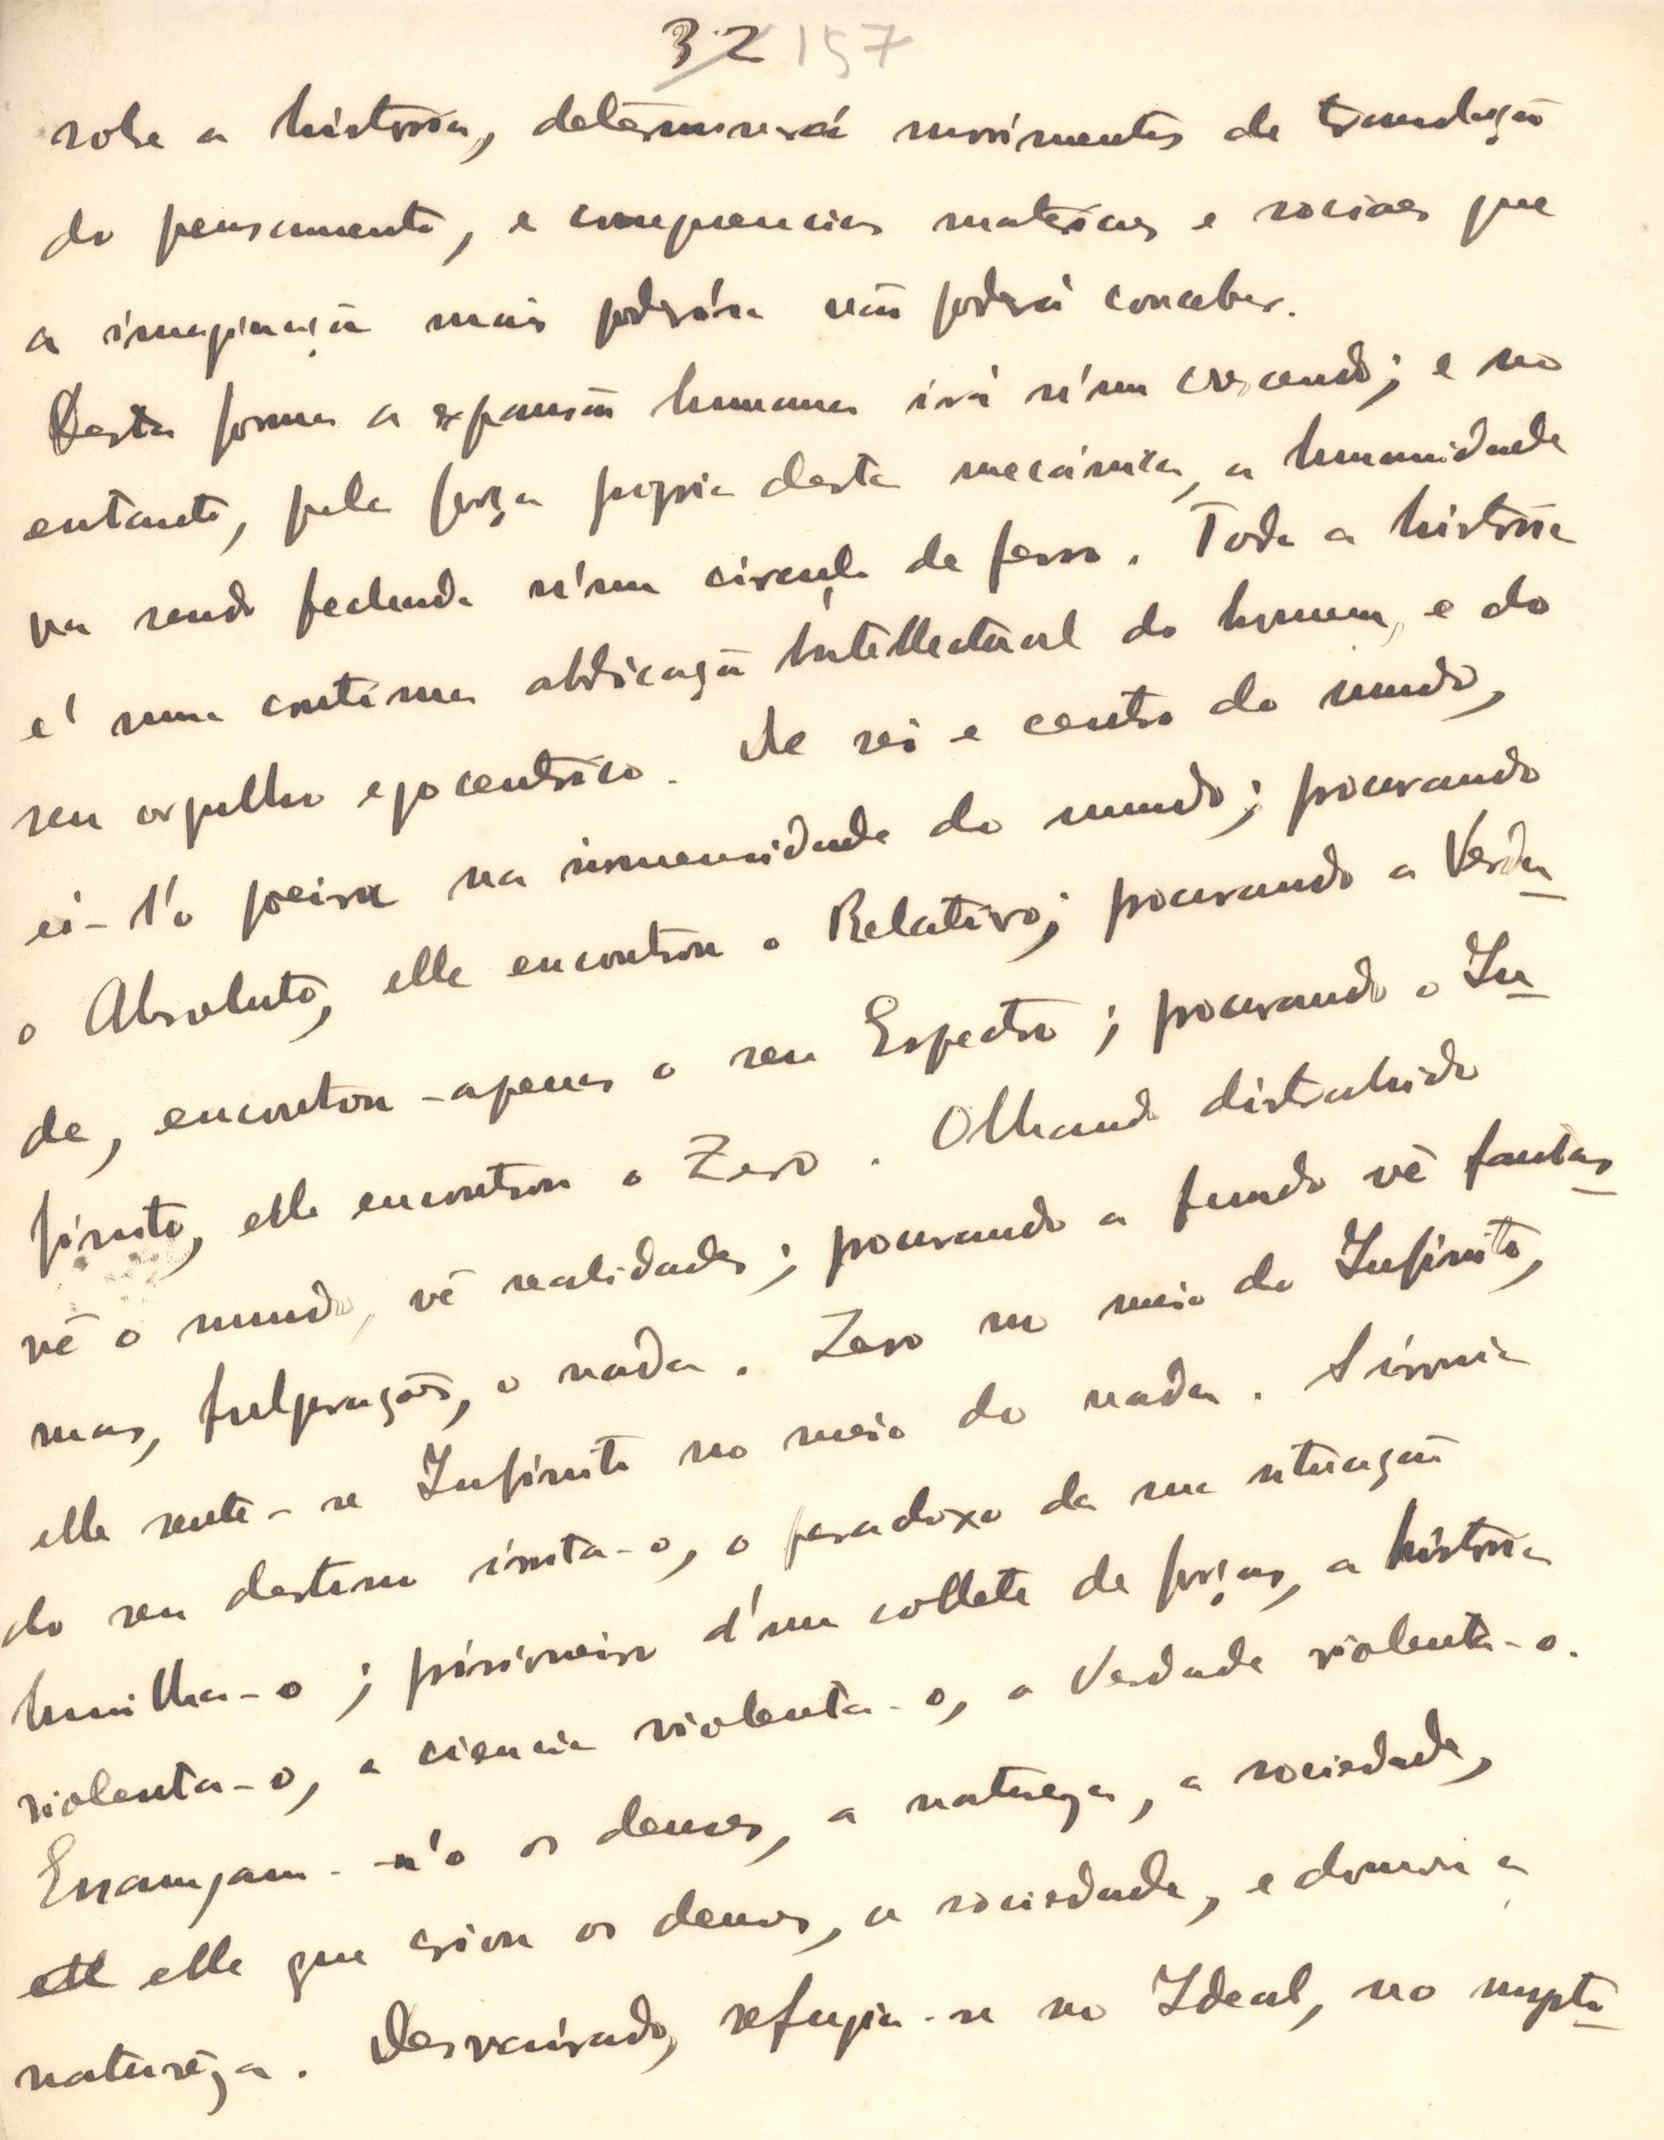 32 157
sobre a historia, determinará movimentos de translação
do pensamento, e consequencias materiaes e sociaes que
a imaginação mais poderosa não poderá conceber.
Desta forma a expansão humana irá n'um crescendo; e no
entanto, pela força propria desta mecánica, a humanidade
va sendo fechada n'um circulo de ferro. Toda a história
é uma continua abdicação intellectual do homem, e do
seu orgulho egocentrico. De rei e centro do mundo,
ei-l'o poeira na immensidade do mundo; procurando
o Absoluto, elle encontrou o Relativo; procurando a Verda-
de, encontrou-apenas o seu Espectro; procurando o In-
finito, elle encontrou o Zero. Olhando distrahido
vê o mundo, vê realidades; procurando a fundo vê fantas-
mas, fulgurações, o nada. Zero no meio do Infinito,
elle sente-se Infinito no meio do nada. A ironia
do seu destino irrita-o, o paradoxo da sua situação
humilha-o; prisioneiro d'um collete de forças, a história
violenta-o, a ciencia violenta-o, a Verdade violenta-o.
os deuses, a natureza, a sociedade,
ell elle que criou os deuses, a sociedade, e domou a
naturêza. Desvairado, refugia-se no Ideal, no